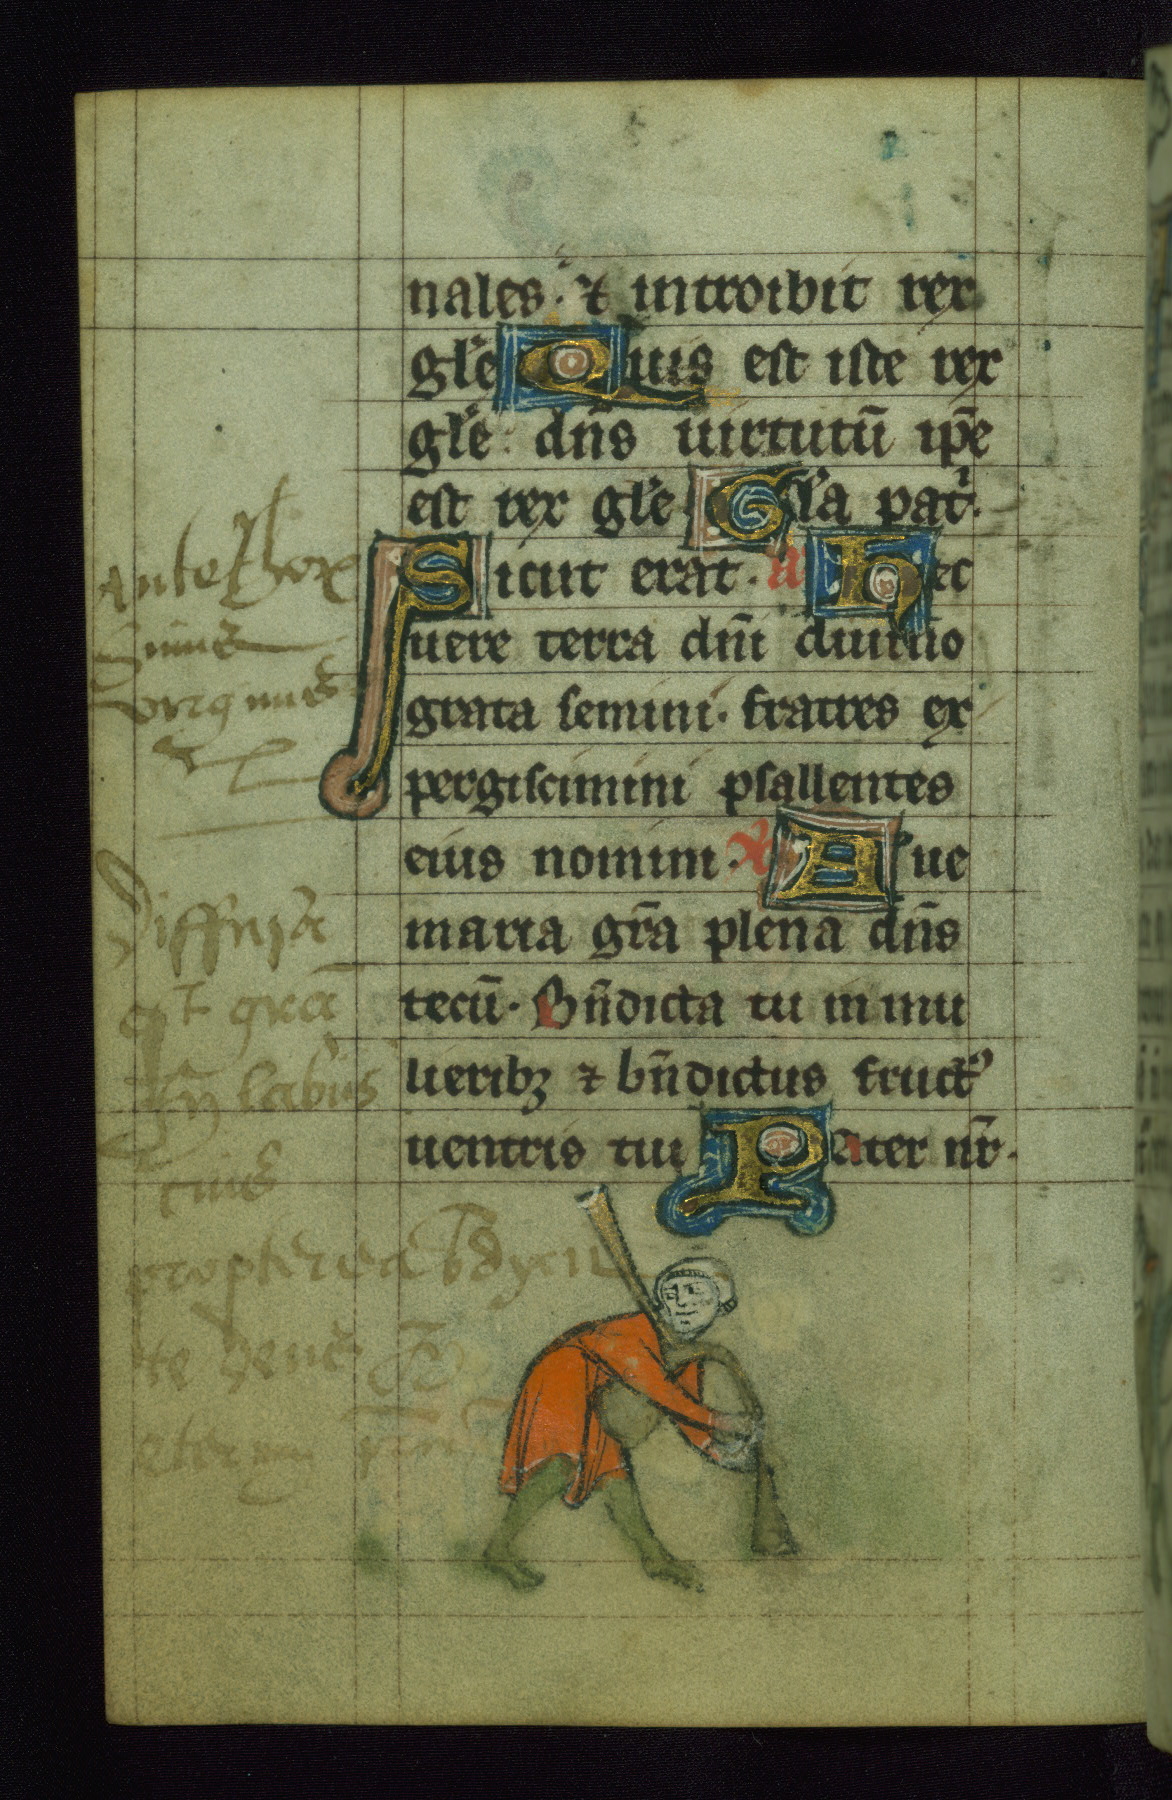 nales · ⁊ introibit rex
gl'e Quis est iste rex
gl'e · dn̄s uirtutū ip̄e
est rex gl'e Gl'a pat'·
Sicut erat · a' Hec
uere terra dn̄i diuino
grata semini · fratres ex
pergiscimini psallentes
eius nomini · V' Aue
maria gr̄a plena dn̄s
tecū · Bn̄dicta tu in mu
lieribꝫ ⁊ bn̄dictus fructꝰ
uentris tui Pater nr̄·
Ante thor
virginis
Diffusa
est grā
labiis
tuis
propterea bn̄dix
te